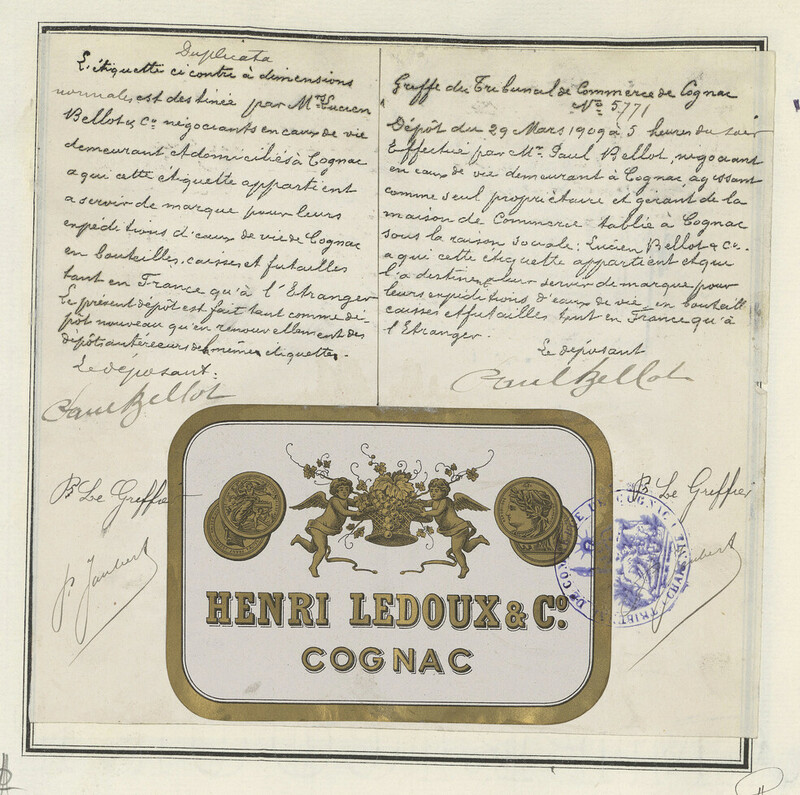 Duplicata
L'étiquette ci contre à dimensions
normales est destinée par Mrs Lucien
Bellot & Co négociants en eaux de vie
demeurant et domiciliés à Cognac
a qui cette étiquette appartient
a servir de marque pour leurs
expéditions d'eaux de vie de Cognac
en bouteilles, caisses et futailles
tant en France qu'à l'Etranger
Le présent dépôt est fait tant comme dé-
pôt nouveau qu'en renouvellement des
dépôts antérieurs des mêmes étiquettes.
Le déposant:
Paul Bellot
Greffe du Tribunal de Commerce de Cognac
No 5771
Dépôt du 29 Mars 1909 à 5 heures du soir
Effectué par Mr. Paul Bellot, négociant
en eaux de vie demeurant à Cognac, agissant
comme seul propriétaire et gérant de la
maison de Commerce établie à Cognac
sous la raison sociale: Lucien Bellot & Co.
a qui cette étiquette appartient et qui
l'a destinée pour servir de marque pour
leurs expéditions d'eaux de vie, en bouteill
caisses et futailles tant en France qu'à
l'Etranger.
Le déposant
Paul Bellot
Pr Le Greffier
P. Jaubert
HENRI LEDOUX & Co.
COGNAC
Pr Le Greffier
TRIBUNAL DE COMMERCE DE COGNAC
CHARENTE